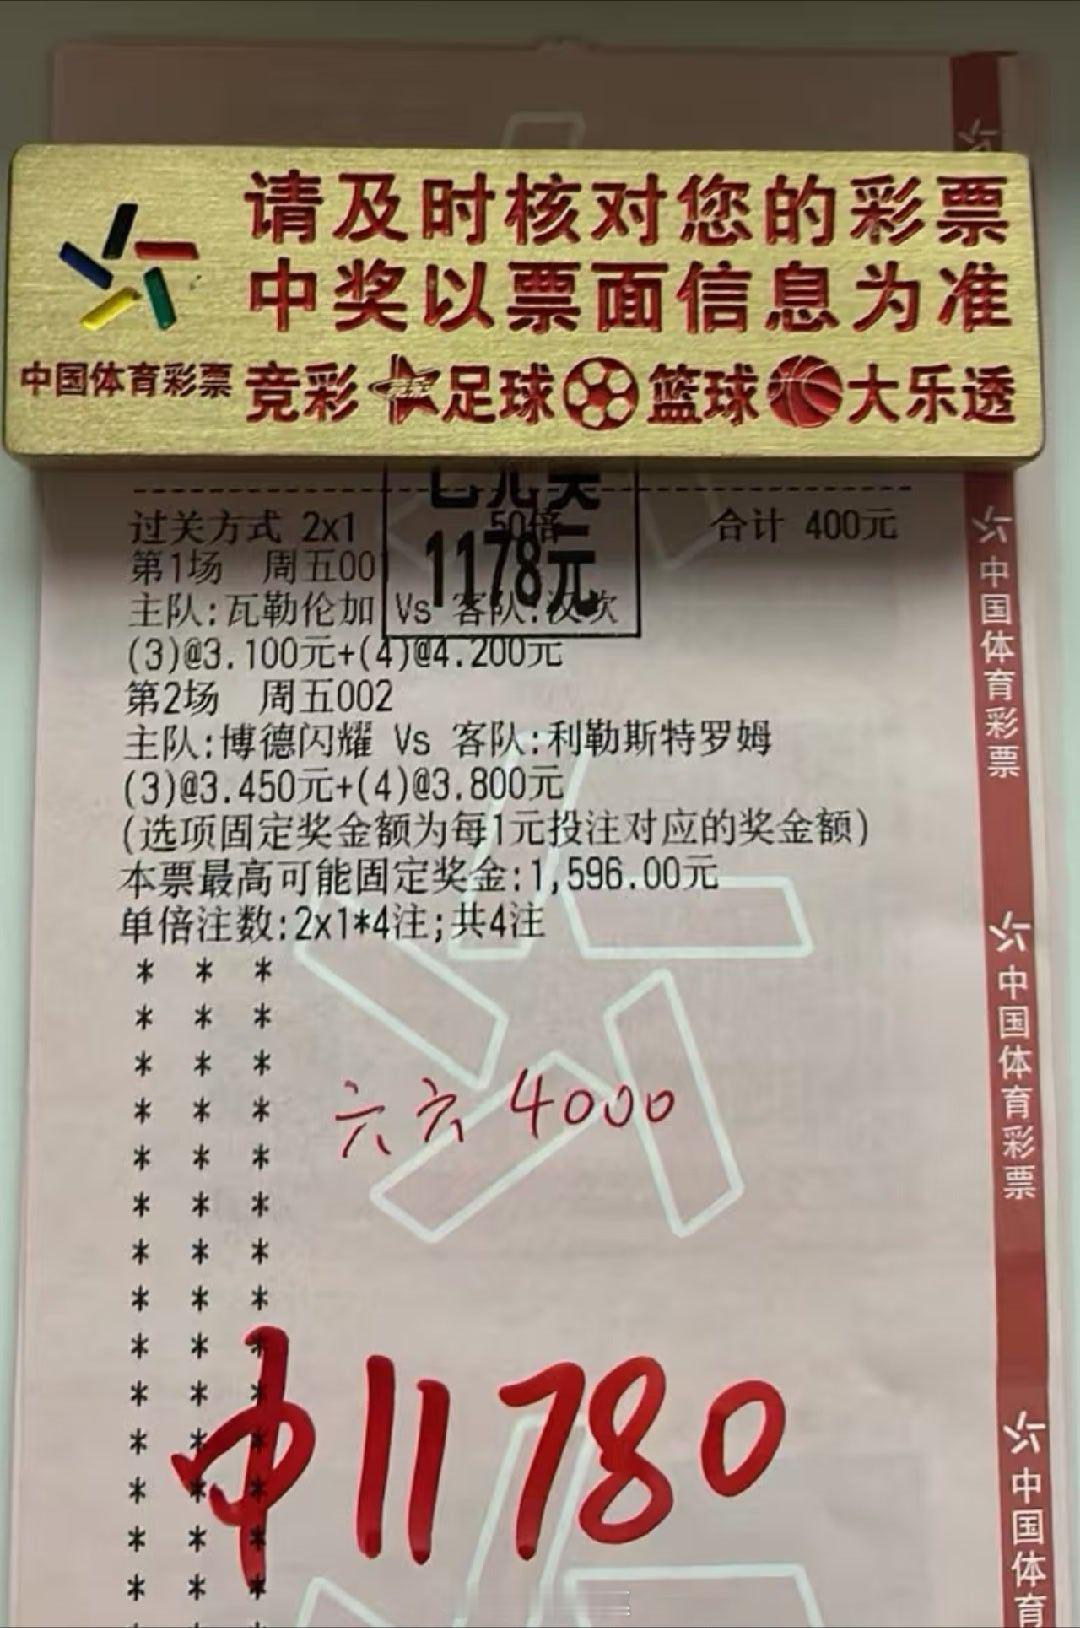 请及时核对您的彩票
中奖以票面信息为准
中国体育彩票 竞彩 足球 篮球 大乐透
已兑奖
1178元
过关方式 2x1 50倍 合计 400元
第1场 周五001
主队:瓦勒伦加 Vs 客队:汉坎
(3)@3.100元+(4)@4.200元
第2场 周五002
主队:博德闪耀 Vs 客队:利勒斯特罗姆
(3)@3.450元+(4)@3.800元
(选项固定奖金额为每1元投注对应的奖金额)
本票最高可能固定奖金:1,596.00元
单倍注数:2x1*4注;共4注
* * *
* * *
* * *
* * *
* * *
* * *
* * *
* * *
* * *
* * *
* * *
* * *
* * *
* * *
六六 4000
中11780
中国体育彩票
中国体育彩票
中国体育